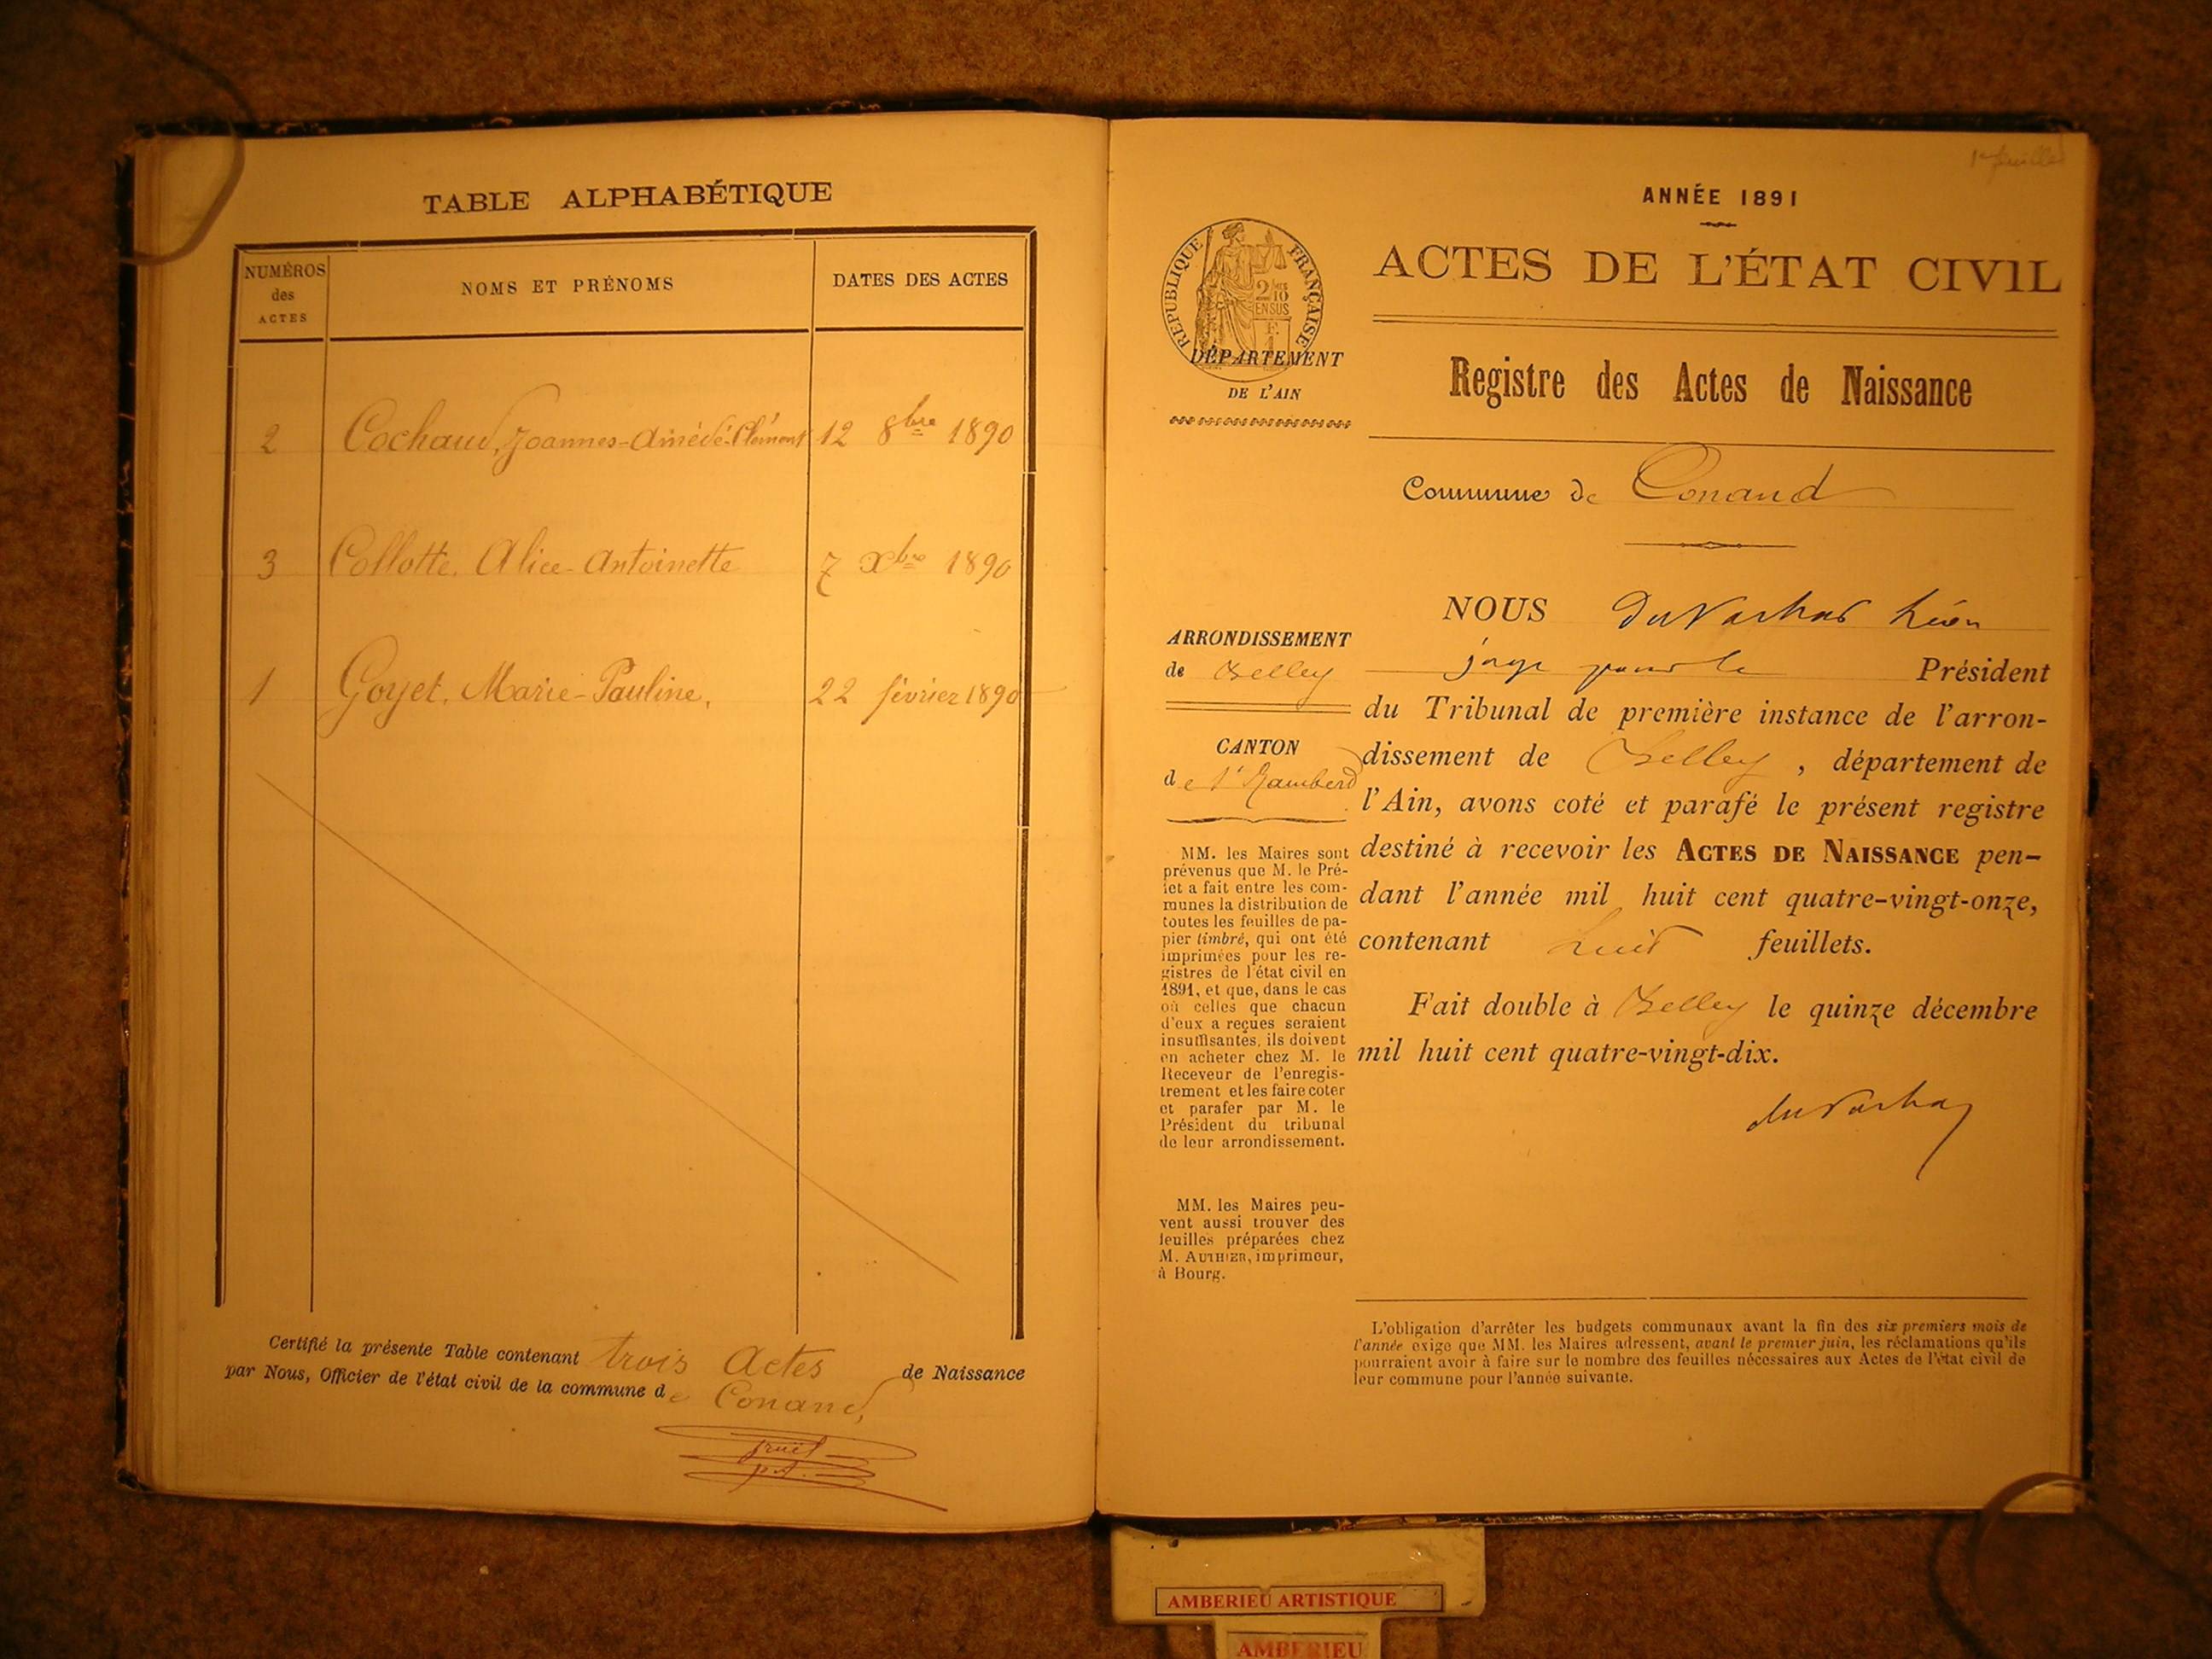 TABLE ALPHABÉTIQUE
NUMÉROS
des
ACTES
NOMS ET PRÉNOMS
DATES DES ACTES
2 Cochaud, Joannes-Amédé-Clément 12 8bre 1890
3 Collotte. Alice-Antoinette 7 Xbre 1890
1 Goyet. Marie-Pauline, 22 février 1890
Certifié la présente Table contenant trois Actes de Naissance
par Nous, Officier de l'état civil de la commune de Conand,
1re feuille
ANNÉE 1891
ACTES DE L'ÉTAT CIVIL
RÉPUBLIQUE FRANÇAISE
2/10
EN SUS
DÉPARTEMENT
DE L'AIN
Registre des Actes de Naissance
Commune de Conand
ARRONDISSEMENT
de Belley
CANTON
de St Rambert
MM. les Maires sont
prévenus que M. le Pré-
fet a fait entre les com-
munes la distribution de
toutes les feuilles de pa-
pier timbré, qui ont été
imprimées pour les re-
gistres de l'état civil en
1891, et que, dans le cas
où celles que chacun
d'eux a reçues seraient
insuffisantes, ils doivent
en acheter chez M. le
Receveur de l'enregis-
trement et les faire coter
et parafer par M. le
Président du tribunal
de leur arrondissement.
MM. les Maires peu-
vent aussi trouver des
feuilles préparées chez
M. AUTHIER, imprimeur,
à Bourg.
NOUS Léon
juge pour le Président
du Tribunal de première instance de l'arron-
dissement de Belley, département de
l'Ain, avons coté et parafé le présent registre
destiné à recevoir les ACTES DE NAISSANCE pen-
dant l'année mil huit cent quatre-vingt-onze,
contenant huit feuillets.
Fait double à Belley le quinze décembre
mil huit cent quatre-vingt-dix.
L'obligation d'arrêter les budgets communaux avant la fin des six premiers mois de
l'année exige que MM. les Maires adressent, avant le premier juin, les réclamations qu'ils
pourraient avoir à faire sur le nombre des feuilles nécessaires aux Actes de l'état civil de
leur commune pour l'année suivante.
AMBERIEU ARTISTIQUE
AMBERIEU